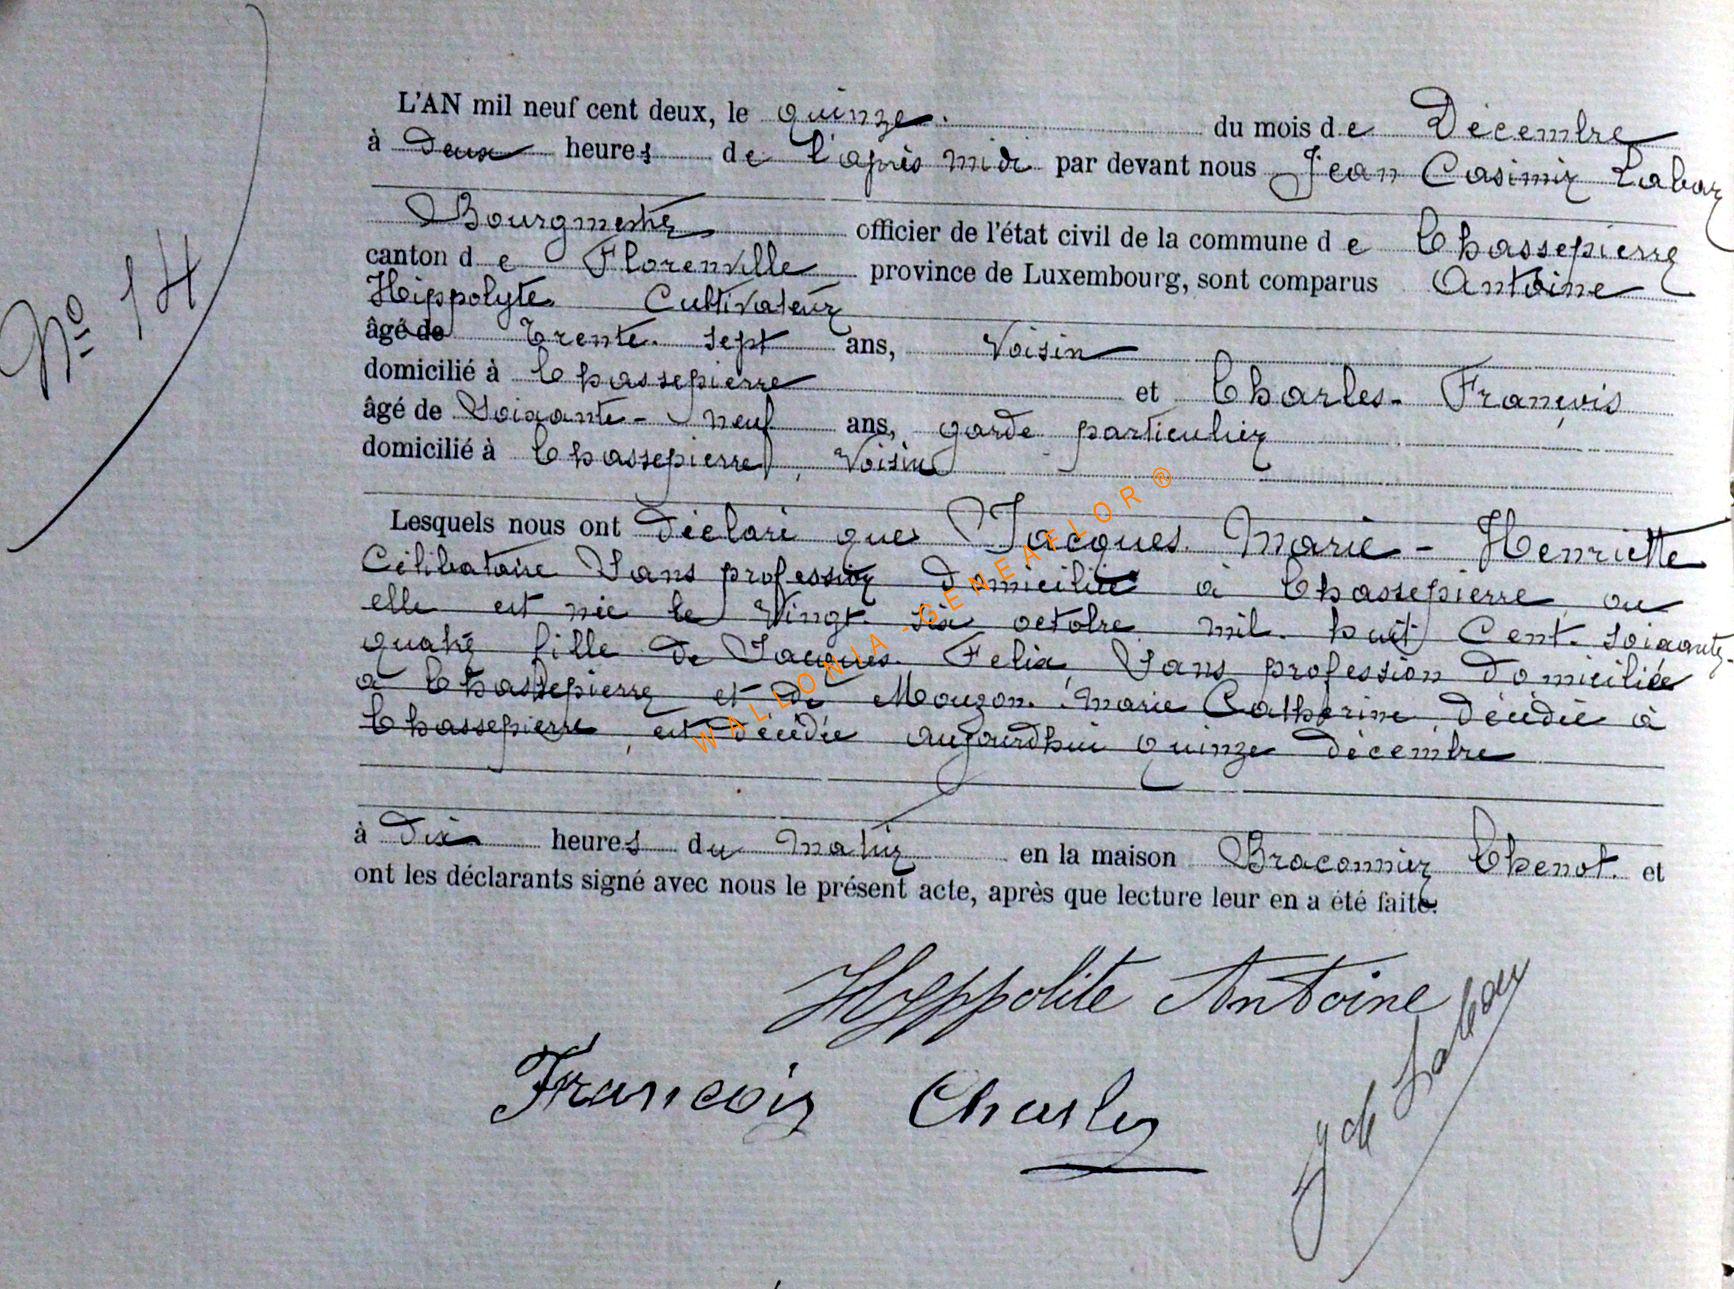 Nº 14
L'AN mil neuf cent deux, le quinze. du mois de Décembre
à Deux heures de l'après midi par devant nous Jean Casimir Labar
Bourgmestre officier de l'état civil de la commune de Chassepierre
canton de Florenville province de Luxembourg, sont comparus Antoine
Hippolyte Cultivateur
âgé de Trente sept ans, Voisin
domicilié à Chassepierre et Charles- François
âgé de Soixante- neuf ans, garde particulier
domicilié à Chassepierre, Voisin
Lesquels nous ont Déclaré que Jacques Marie - Henriette
Célibataire Sans profession Domiciliée à Chassepierre ou
elle est née le Vingt six octobre mil huit Cent soixante-
quatre fille de Jacques Felix, Sans profession Domiciliée
à Chassepierre et de Mouzon Marie Catherine Décédée à
Chassepierre, est Décédée aujourdhui quinze décembre
à Dix heures du Matin en la maison Braconnier Chenot. et
ont les déclarants signé avec nous le présent acte, après que lecture leur en a été faite.
Hyppolite Antoine
Francois Charles
J de Labar
WALLONIA - GENEAELOR ®